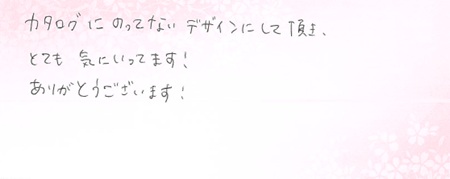 カタログにのってないデザインにして頂き、
とても気にいってます!
ありがとうございます!